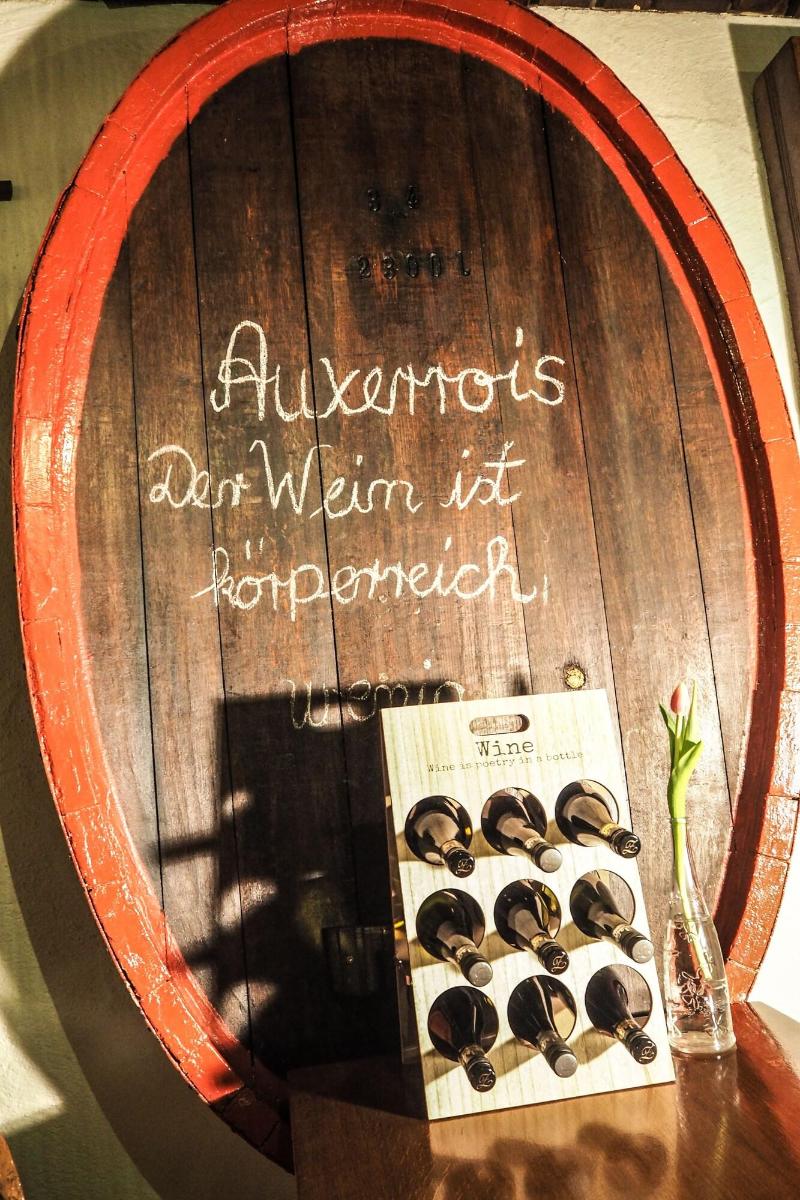 2300 L
Auxerrois
Der Wein ist
körperreich,
wenig
Wine
Wine is poetry in a bottle